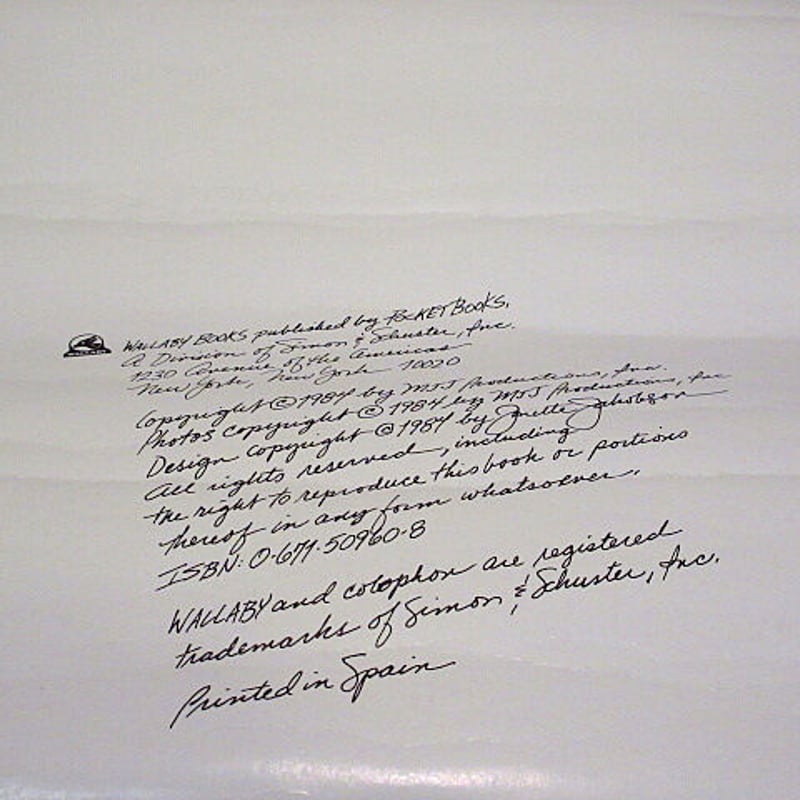 WALLABY BOOKS published by POCKET BOOKS,
A Division of Simon & Schuster, Inc.
1230 Avenue of the Americas
New York, New York 10020
Copyright © 1984 by MJJ Productions, Inc.
Photos copyright © 1984 by MJJ Productions, Inc
Design copyright © 1984 by Janette Jakobson
All rights reserved, including
the right to reproduce this book or portions
thereof in any form whatsoever.
ISBN: 0-671-50960-8
WALLABY and colophon are registered
trademarks of Simon & Schuster, Inc.
Printed in Spain